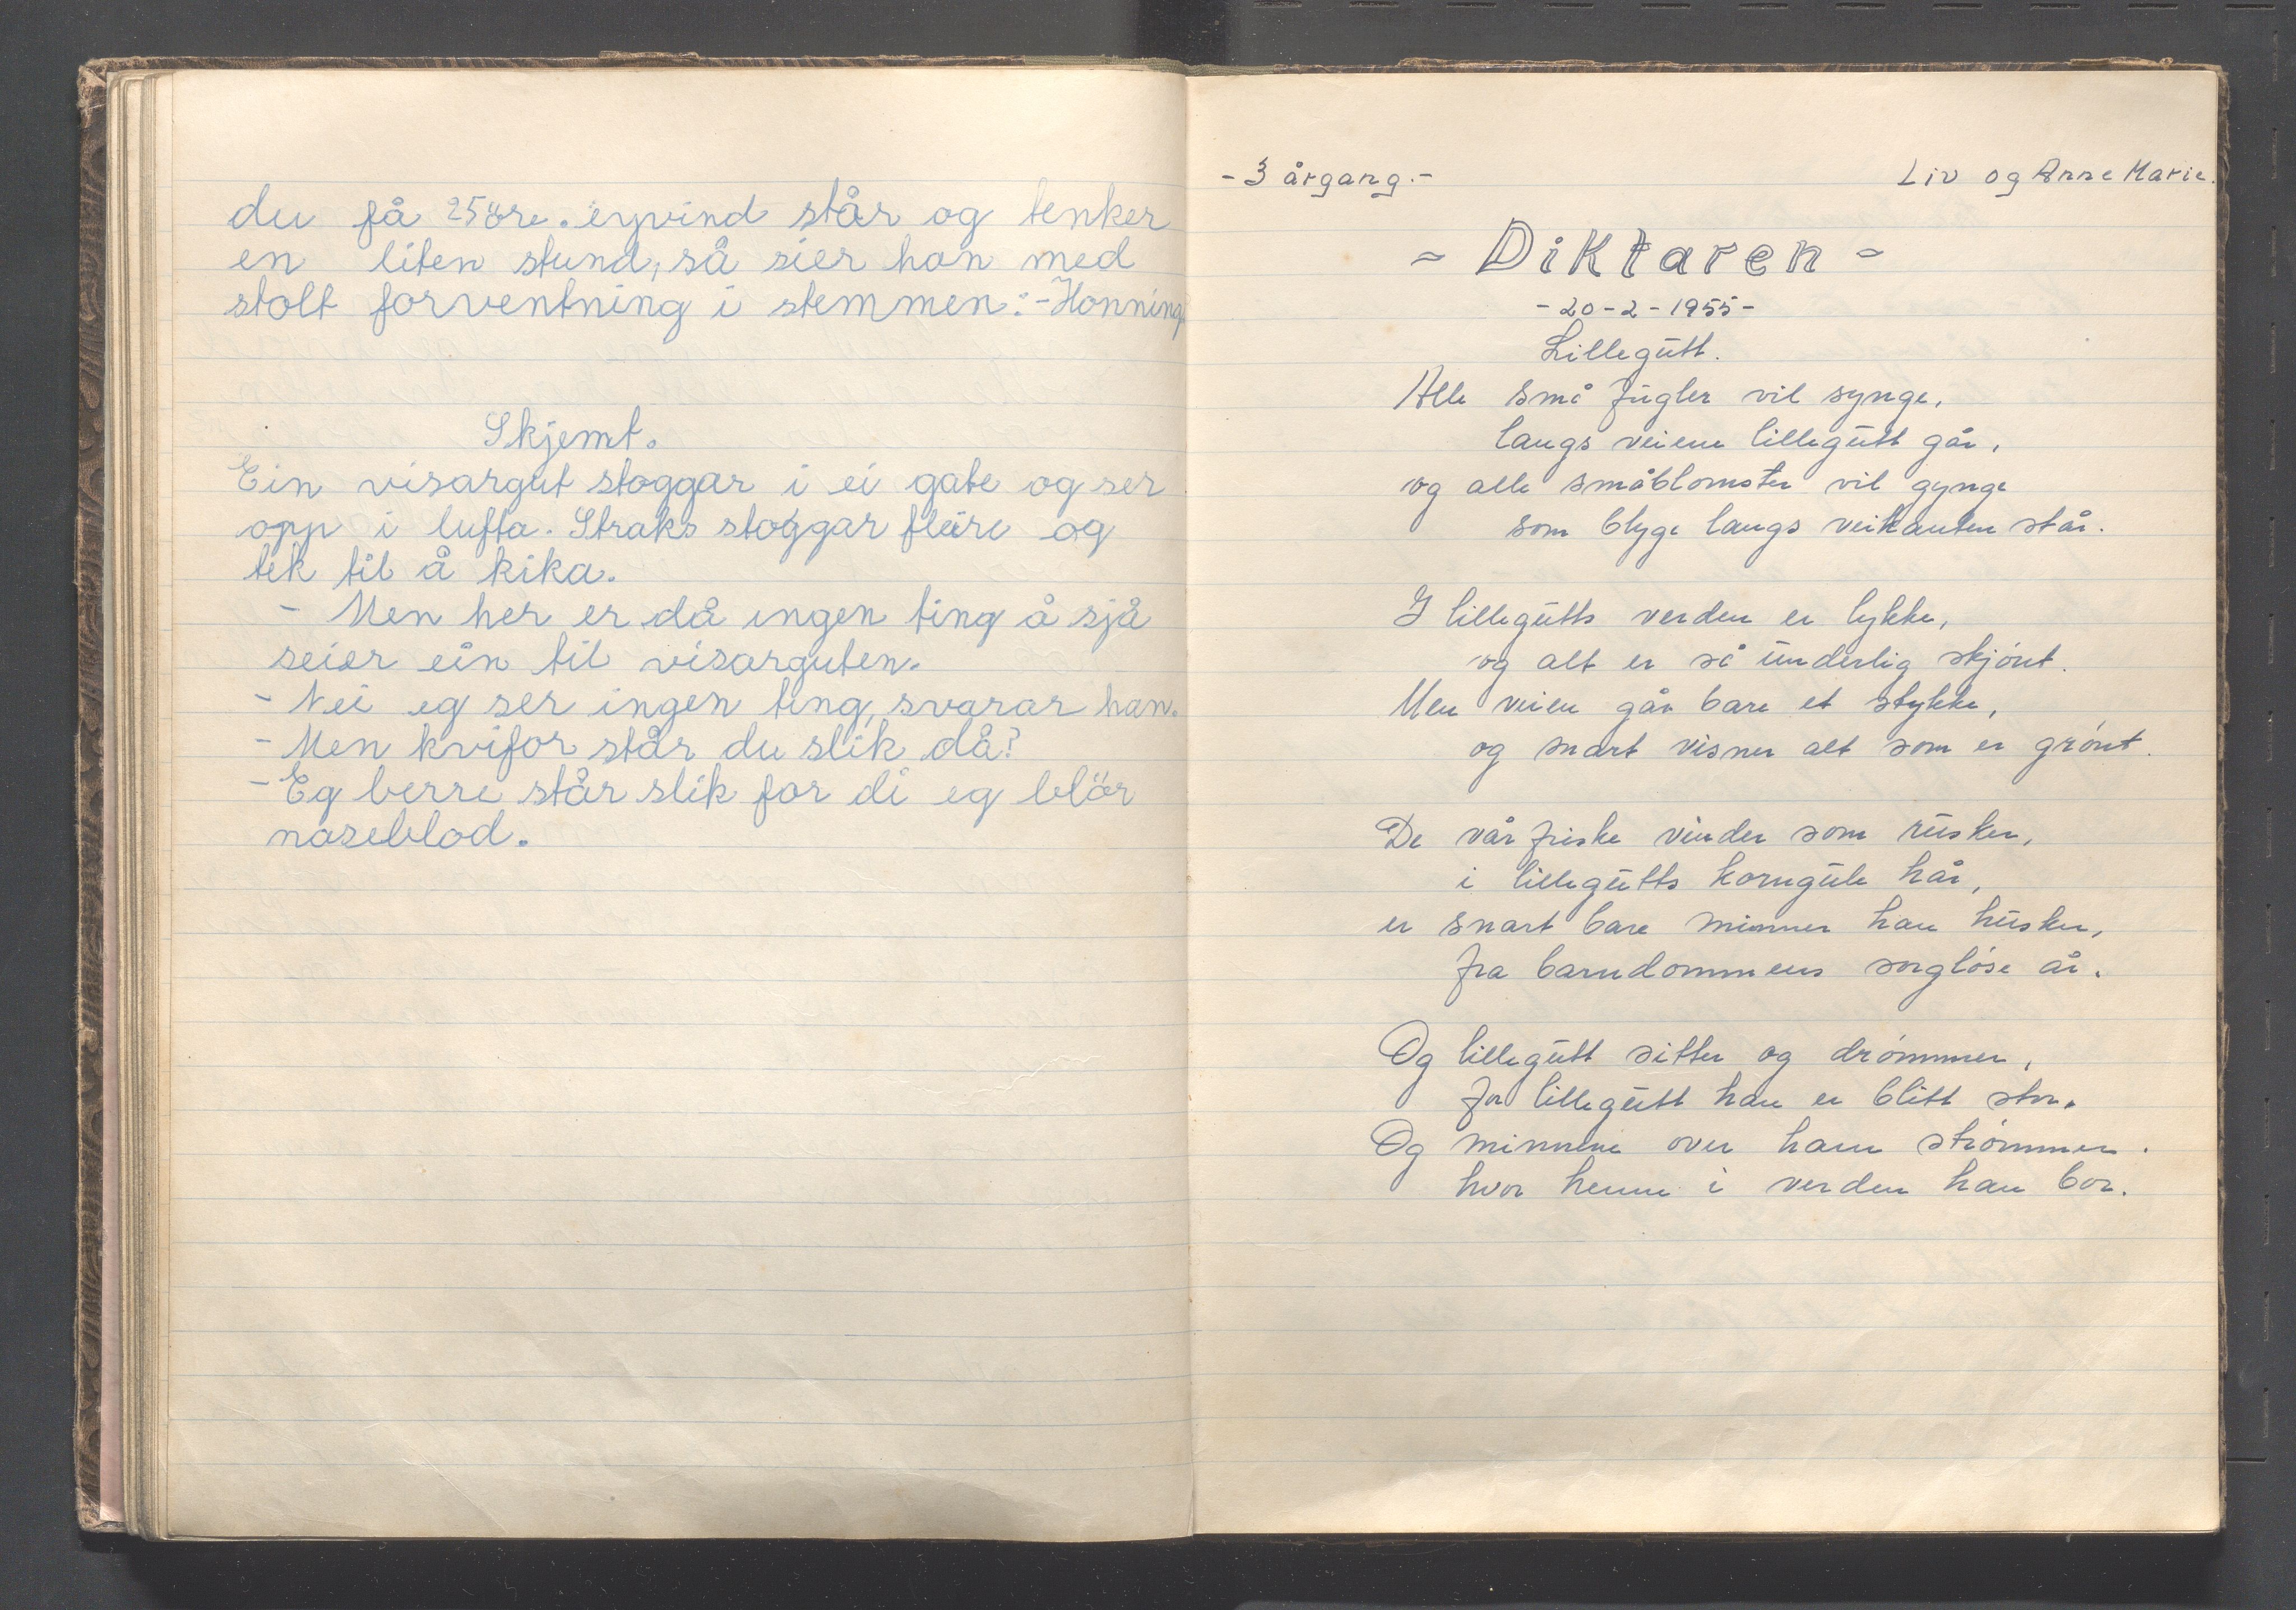 du få 25öre. eyvind står og tenker
en liten stund, så sier han med
stolt forventning i stemmen:-Honning.
Skjemt.
Ein visargut stoggar i ei gate og ser
opp i lufta. Straks stoggar fleire og
tek til å kika.
- Men her er då ingen ting å sjå
seier ein til visarguten.
- Nei eg ser ingen ting, svarar han.
- Men kvifor står du slik då?
- Eg berre står slik for di eg blör
naseblod.
- 3 årgang.-
Liv og Anne Marie.
- Diktaren -
- 20 - 2 - 1955 -
Lillegutt.
Alle små fugler vil synge,
langs veiene lillegutt går,
og alle småblomster vil gynge
som blyge langs veikanten står.
I lillegutts verden er lykke,
og alt er så underlig skjönt.
Men veien går bare et stykke,
og snart visner alt som er grönt.
De vårfriske vinder som rusker,
i lillegutts korngule hår,
er snart bare minner han husker,
fra barndommens sorglöse år.
Og lillegutt sitter og drömmer,
for lillegutt han er blitt stor.
Og minnene over ham strömmer.
hvor henne i verden han bor.